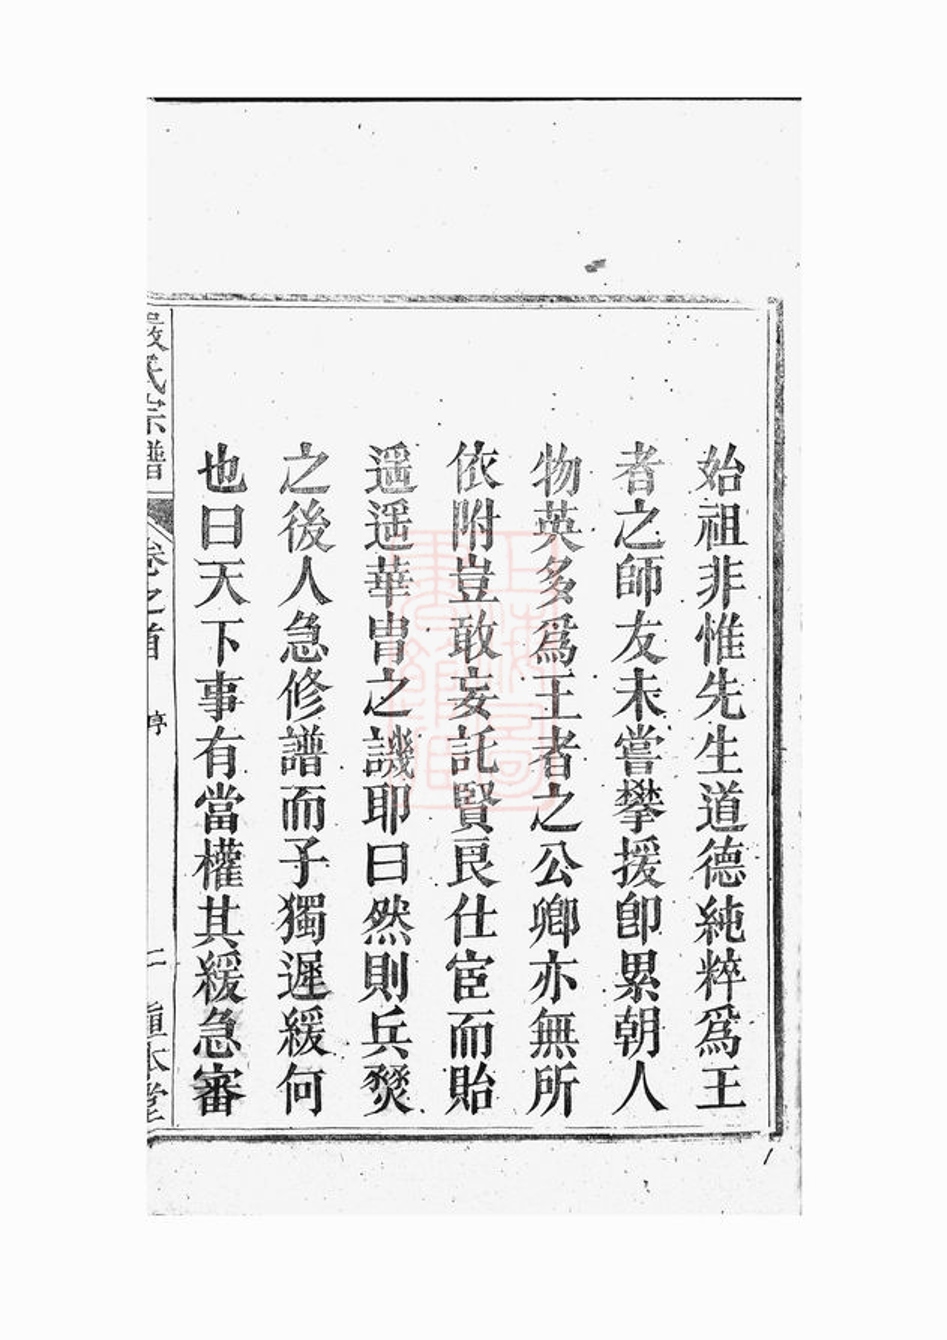 始祖非惟先生道德純粹爲王
者之師友未嘗攀援卽累朝人
物英多爲王者之公卿亦無所
依附豈敢妄託賢良仕宦而貽
遥遥華胄之譏耶曰然則兵燹
之後人急修譜而子獨遲緩何
也曰天下事有當權其緩急審
嚴氏宗譜
卷之首
序
二
重本堂